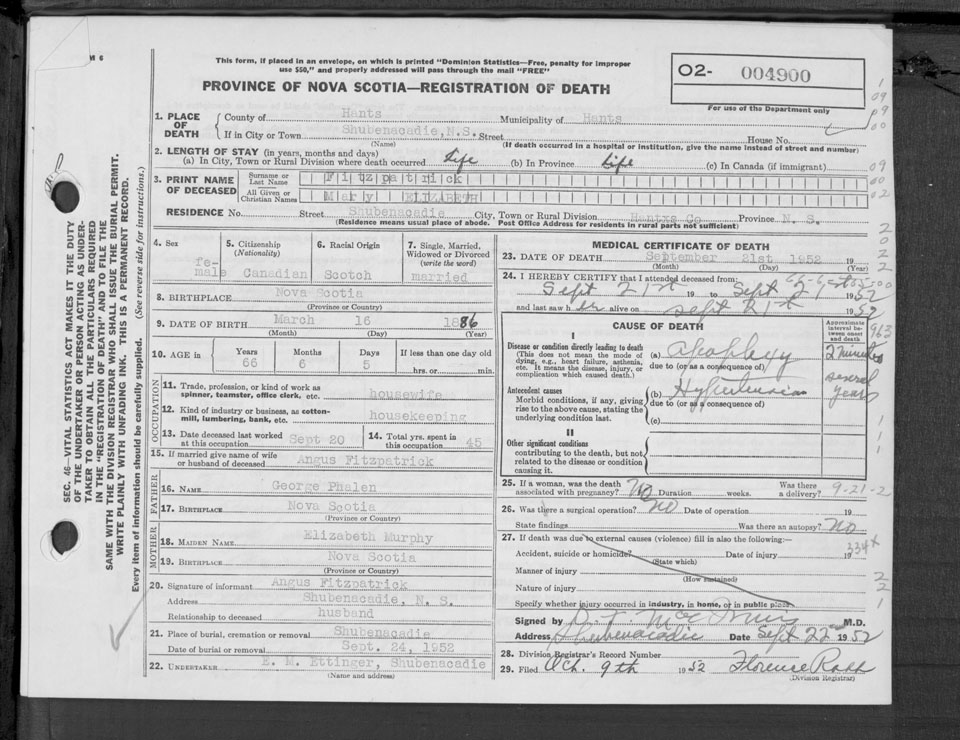 M 6
This form, if placed in an envelope, on which is printed "Dominion Statistics—Free, penalty for improper
use $50," and properly addressed will pass through the mail "FREE"
PROVINCE OF NOVA SCOTIA—REGISTRATION OF DEATH
O2- 004900
For use of the Department only
SEC. 46—VITAL STATISTICS ACT MAKES IT THE DUTY
OF THE UNDERTAKER OR PERSON ACTING AS UNDER-
TAKER TO OBTAIN ALL THE PARTICULARS REQUIRED
IN THE "REGISTRATION OF DEATH" AND TO FILE THE
SAME WITH THE DIVISION REGISTRAR WHO SHALL ISSUE THE BURIAL PERMIT.
WRITE PLAINLY WITH UNFADING INK. THIS IS A PERMANENT RECORD.
Every item of information should be carefully supplied. (See reverse side for instructions.)
1. PLACE OF DEATH
County of Hants Municipality of Hants
If in City or Town Shubenacadie, N.S. Street House No.
(Name) (If death occurred in a hospital or institution, give the name instead of street and number)
2. LENGTH OF STAY (in years, months and days)
(a) In City, Town or Rural Division where death occurred Life (b) In Province Life (c) In Canada (if immigrant)
3. PRINT NAME OF DECEASED
Surname or Last Name Fitzpatrick
All Given or Christian Names Mary ELIZABETH
RESIDENCE No. Street Shubenacadie City, Town or Rural Division Hantxs Co Province N. S.
(Residence means usual place of abode. Post Office Address for residents in rural parts not sufficient)
4. Sex female
5. Citizenship (Nationality) Canadian
6. Racial Origin Scotch
7. Single, Married, Widowed or Divorced (write the word) married
8. BIRTHPLACE Nova Scotia
(Province or Country)
9. DATE OF BIRTH March 16 1886
(Month) (Day) (Year)
10. AGE in Years 66 Months 6 Days 5 If less than one day old hrs. or min.
OCCUPATION
11. Trade, profession, or kind of work as
spinner, teamster, office clerk, etc. housewife
12. Kind of industry or business, as cotton-
mill, lumbering, bank, etc. housekeeping
13. Date deceased last worked at this occupation Sept 20
14. Total yrs. spent in this occupation 45
15. If married give name of wife or husband of deceased Angus Fitzpatrick
FATHER
16. NAME George Phalen
17. BIRTHPLACE Nova Scotia
(Province or Country)
MOTHER
18. MAIDEN NAME Elizabeth Murphy
19. BIRTHPLACE Nova Scotia
(Province or Country)
20. Signature of informant Angus Fitzpatrick
Address Shubenacadie, N. S.
Relationship to deceased husband
21. Place of burial, cremation or removal Shubenacadie
Date of burial or removal Sept. 24, 1952
22. UNDERTAKER E. M. Ettinger, Shubenacadie
(Name and address)
MEDICAL CERTIFICATE OF DEATH
23. DATE OF DEATH September 21st 1952
(Month) (Day) (Year)
24. I HEREBY CERTIFY that I attended deceased from:
Sept 21st 19 to Sept 1952
and last saw her alive on Sept 21st 1952
CAUSE OF DEATH
Approximate interval between onset and death
I
Disease or condition directly leading to death
(This does not mean the mode of
dying, e.g., heart failure, asthenia,
etc. It means the disease, injury, or
complication which caused death.)
(a) apoplexy 2 minutes
due to (or as a consequence of)
Antecedent causes
Morbid conditions, if any, giving
rise to the above cause, stating the
underlying condition last.
(b) Hypertension several years
due to (or as a consequence of)
(c)
II
Other significant conditions
contributing to the death, but not
related to the disease or condition
causing it.
25. If a woman, was the death associated with pregnancy? No Duration weeks. Was there a delivery? 9-21-2
26. Was there a surgical operation? No Date of operation 19
State findings Was there an autopsy? No
27. If death was due to external causes (violence) fill in also the following:—
Accident, suicide or homicide? Date of injury 19 334x
(State which)
Manner of injury
(How sustained)
Nature of injury
Specify whether injury occurred in industry, in home, or in public place
Signed by M.D.
Address Shubenacadie Date Sept 22 1952
28. Division Registrar's Record Number
29. Filed Oct. 9th 1952 Florence
(Division Registrar)